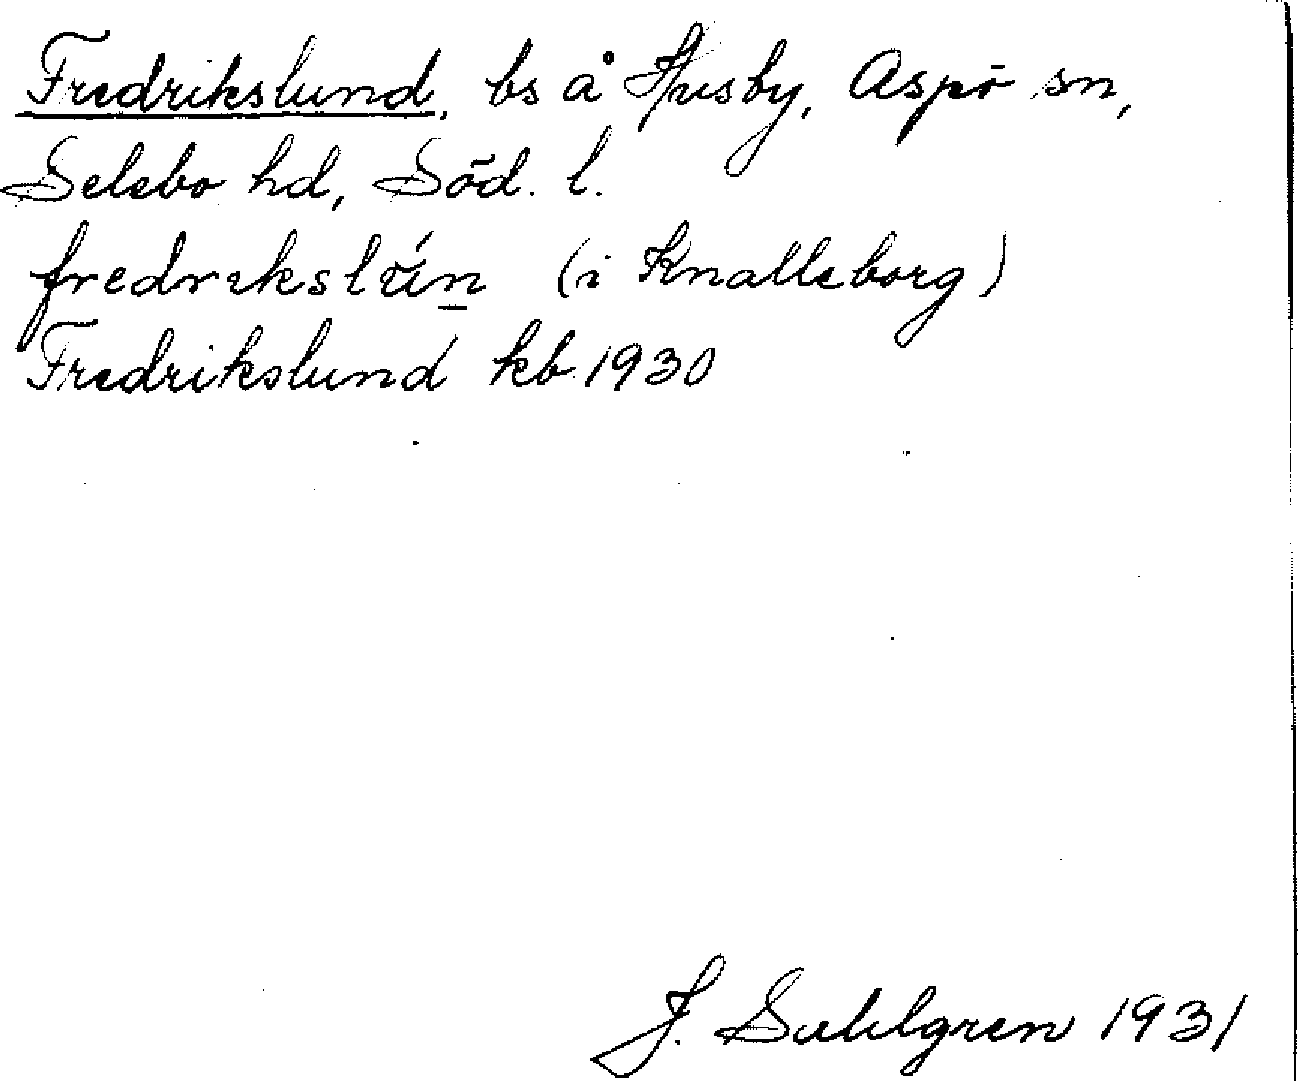 Fredrikslund, bs å Husby, Aspö sn,
Selebo hd, Söd. l.
(i Knalleborg)
Fredrikslund kb 1930
J. Sahlgren 1931